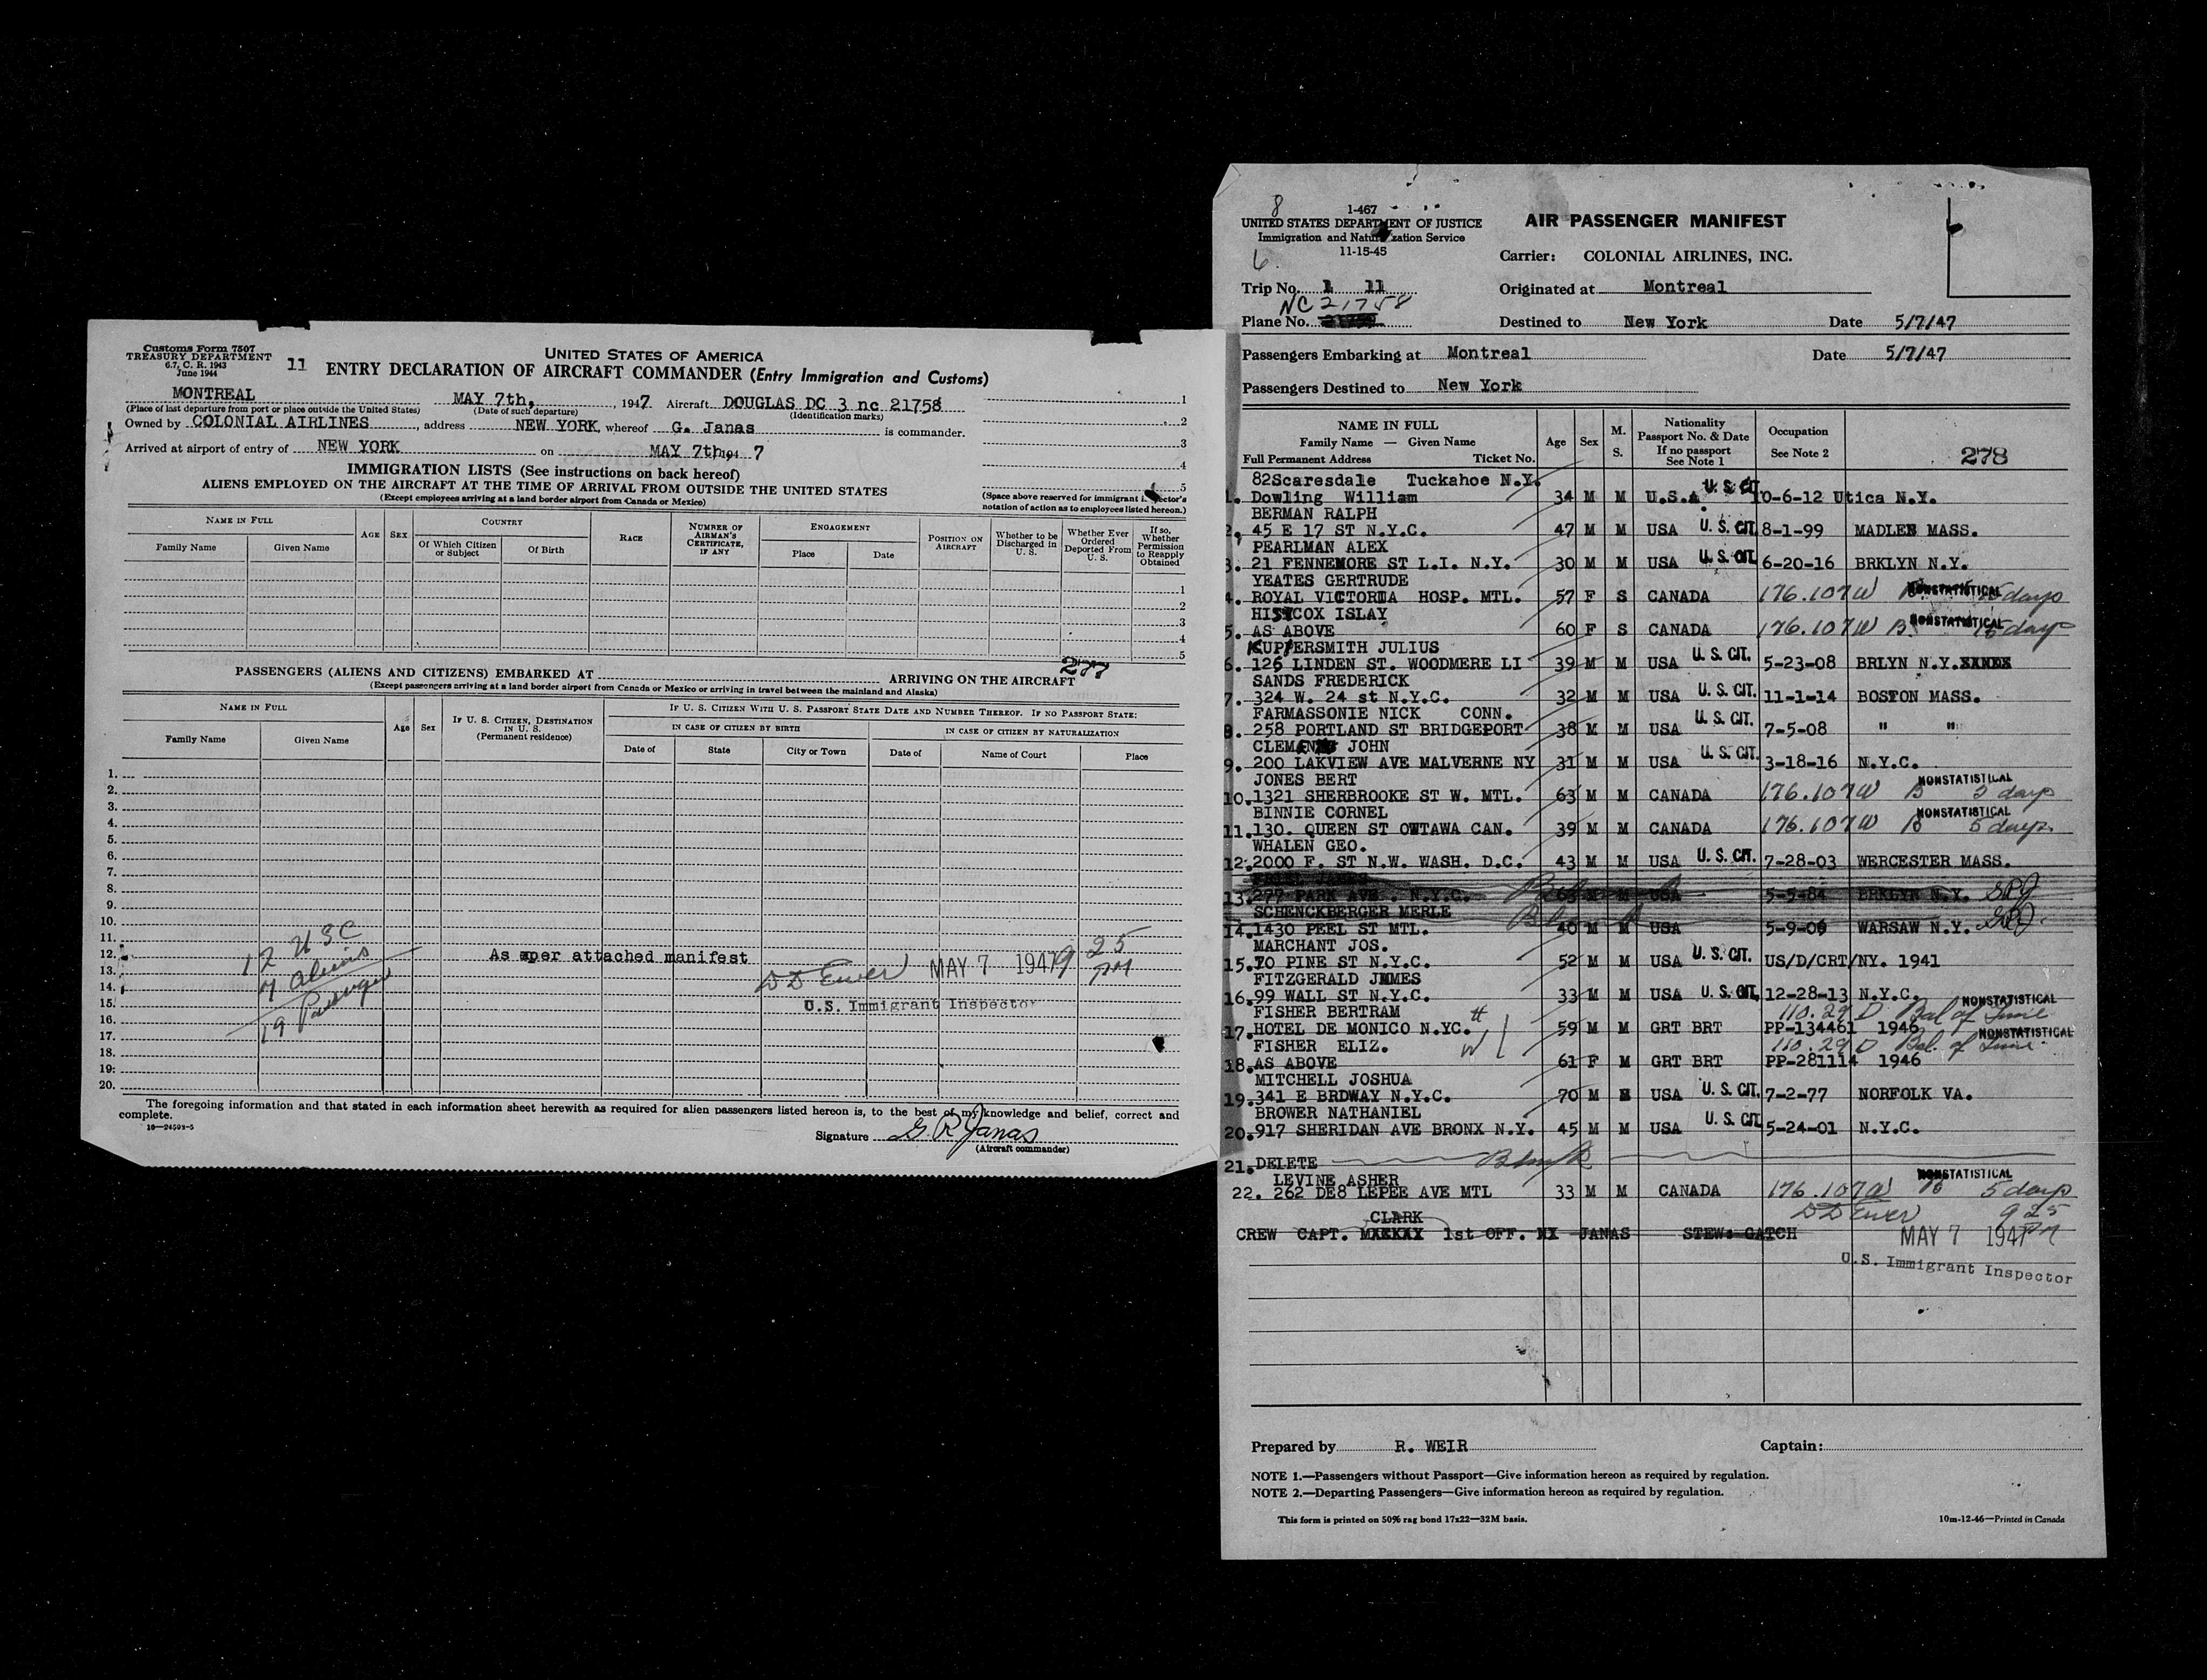 Customs Form 7507
TREASURY DEPARTMENT
6.7, C. R. 1943
June 1944
11
UNITED STATES OF AMERICA
ENTRY DECLARATION OF AIRCRAFT COMMANDER (Entry Immigration and Customs)
MONTREAL MAY 7th, , 1947 Aircraft DOUGLAS DC 3 nc 21758
(Place of last departure from port or place outside the United States) (Date of such departure) (Identification marks)
Owned by COLONIAL AIRLINES , address NEW YORK, whereof G. Janas is commander.
Arrived at airport of entry of NEW YORK on MAY 7th, 194 7
1
2
3
4
5
(Space above reserved for immigrant inspector's notation of action as to employees listed hereon.)
IMMIGRATION LISTS (See instructions on back hereof)
ALIENS EMPLOYED ON THE AIRCRAFT AT THE TIME OF ARRIVAL FROM OUTSIDE THE UNITED STATES
(Except employees arriving at a land border airport from Canada or Mexico)
NAME IN FULL AGE SEX COUNTRY RACE NUMBER OF AIRMAN'S CERTIFICATE, IF ANY ENGAGEMENT POSITION ON AIRCRAFT Whether to be Discharged in U. S. Whether Ever Ordered Deported From U. S. If so, Whether Permission to Reapply Obtained
Family Name Given Name Of Which Citizen or Subject Of Birth Place Date
1
2
3
4
5
277
PASSENGERS (ALIENS AND CITIZENS) EMBARKED AT ARRIVING ON THE AIRCRAFT
(Except passengers arriving at a land border airport from Canada or Mexico or arriving in travel between the mainland and Alaska)
NAME IN FULL Age Sex IF U. S. CITIZEN, DESTINATION IN U. S. (Permanent residence) IF U. S. CITIZEN WITH U. S. PASSPORT STATE DATE AND NUMBER THEREOF. IF NO PASSPORT STATE:
IN CASE OF CITIZEN BY BIRTH IN CASE OF CITIZEN BY NATURALIZATION
Family Name Given Name Date of State City or Town Date of Name of Court Place
1.
2.
3.
4.
5.
6.
7.
8.
9.
10.
11.
12.
13.
14.
15.
16.
17.
18.
19.
20.
12 USC
7 Aliens
19 Passenger
As per attached manifest
D D Ewer MAY 7 1947 9 25 PM
U.S. Immigrant Inspector
The foregoing information and that stated in each information sheet herewith as required for alien passengers listed hereon is, to the best of my knowledge and belief, correct and
complete.
16—24593-5
Signature G R Janas
(Aircraft commander)
8
1-467
UNITED STATES DEPARTMENT OF JUSTICE
Immigration and Naturalization Service
11-15-45
6
AIR PASSENGER MANIFEST
Carrier: COLONIAL AIRLINES, INC.
Trip No. 1 11 Originated at Montreal
NC 21758
Plane No. Destined to New York Date 5/7/47
Passengers Embarking at Montreal Date 5/7/47
Passengers Destined to New York
NAME IN FULL Age Sex M. S. Nationality Passport No. & Date If no passport See Note 1 Occupation See Note 2
Family Name — Given Name
Full Permanent Address Ticket No.
278
82Scaresdale Tuckahoe N.Y.
1. Dowling William 34 M M U.S.A U. S. CIT. 10-6-12 Utica N.Y.
BERMAN RALPH
2. 45 E 17 ST N.Y.C. 47 M M USA U. S. CIT. 8-1-99 MADLEN MASS.
PEARLMAN ALEX
3. 21 FENNEMORE ST L.I. N.Y. 30 M M USA U. S. CIT. 6-20-16 BRKLYN N.Y.
YEATES GERTRUDE
4. ROYAL VICTORIA HOSP. MTL. 57 F S CANADA 176.107W NONSTATISTICAL days
HISCOX ISLAY
5. AS ABOVE 60 F S CANADA 176.107W B NONSTATISTICAL 15 days
KUPFERSMITH JULIUS
6. 126 LINDEN ST. WOODMERE LI 39 M M USA U. S. CIT. 5-23-08 BRLYN N.Y.
SANDS FREDERICK
7. 324 W. 24 st N.Y.C. 32 M M USA U. S. CIT. 11-1-14 BOSTON MASS.
FARMASSONIE NICK CONN.
8. 258 PORTLAND ST BRIDGEPORT 38 M M USA U. S. CIT. 7-5-08 " "
CLEMENS JOHN
9. 200 LAKVIEW AVE MALVERNE NY 31 M M USA U. S. CIT. 3-18-16 N.Y.C.
JONES BERT
10. 1321 SHERBROOKE ST W. MTL. 63 M M CANADA 176.107W B NONSTATISTICAL 5 days
BINNIE CORNEL
11. 130. QUEEN ST OWTAWA CAN. 39 M M CANADA 176.107W B NONSTATISTICAL 5 days
WHALEN GEO.
12. 2000 F. ST N.W. WASH. D.C. 43 M M USA U. S. CIT. 7-28-03 WERCESTER MASS.
13. 277 PARK AVE . N.Y.C. 63 M M USA 5-5-84 BRKLYN N.Y.
SCHENCKBERGER MERLE
14. 1430 PEEL ST MTL. 40 M M USA 5-9-06 WARSAW N.Y.
MARCHANT JOS.
15. 70 PINE ST N.Y.C. 52 M M USA U. S. CIT. US/D/CRT/NY. 1941
FITZGERALD JAMES
16. 99 WALL ST N.Y.C. 33 M M USA U. S. CIT. 12-28-13 N.Y.C.
FISHER BERTRAM H 110.29 D Bal of Time NONSTATISTICAL
17. HOTEL DE MONICO N.YC. 59 M M GRT BRT PP-134461 1946
FISHER ELIZ. W 110.29 D Bal. of Time NONSTATISTICAL
18. AS ABOVE 61 F M GRT BRT PP-281114 1946
MITCHELL JOSHUA
19. 341 E BRDWAY N.Y.C. 70 M USA U. S. CIT. 7-2-77 NORFOLK VA.
BROWER NATHANIEL
20. 917 SHERIDAN AVE BRONX N.Y. 45 M M USA U. S. CIT. 5-24-01 N.Y.C.
21. DELETE Blank
LEVINE ASHER
22. 262 DE8 LEPEE AVE MTL 33 M M CANADA 176.107W B NONSTATISTICAL 5 days
D D Ewer 9 25 PM
CLARK
CREW CAPT. 1st OFF. JANAS STEW: GATCH
MAY 7 1947
U.S. Immigrant Inspector
Prepared by R. WEIR Captain:
NOTE 1.—Passengers without Passport—Give information hereon as required by regulation.
NOTE 2.—Departing Passengers—Give information hereon as required by regulation.
This form is printed on 50% rag bond 17x22—32M basis. 10m-12-46—Printed in Canada